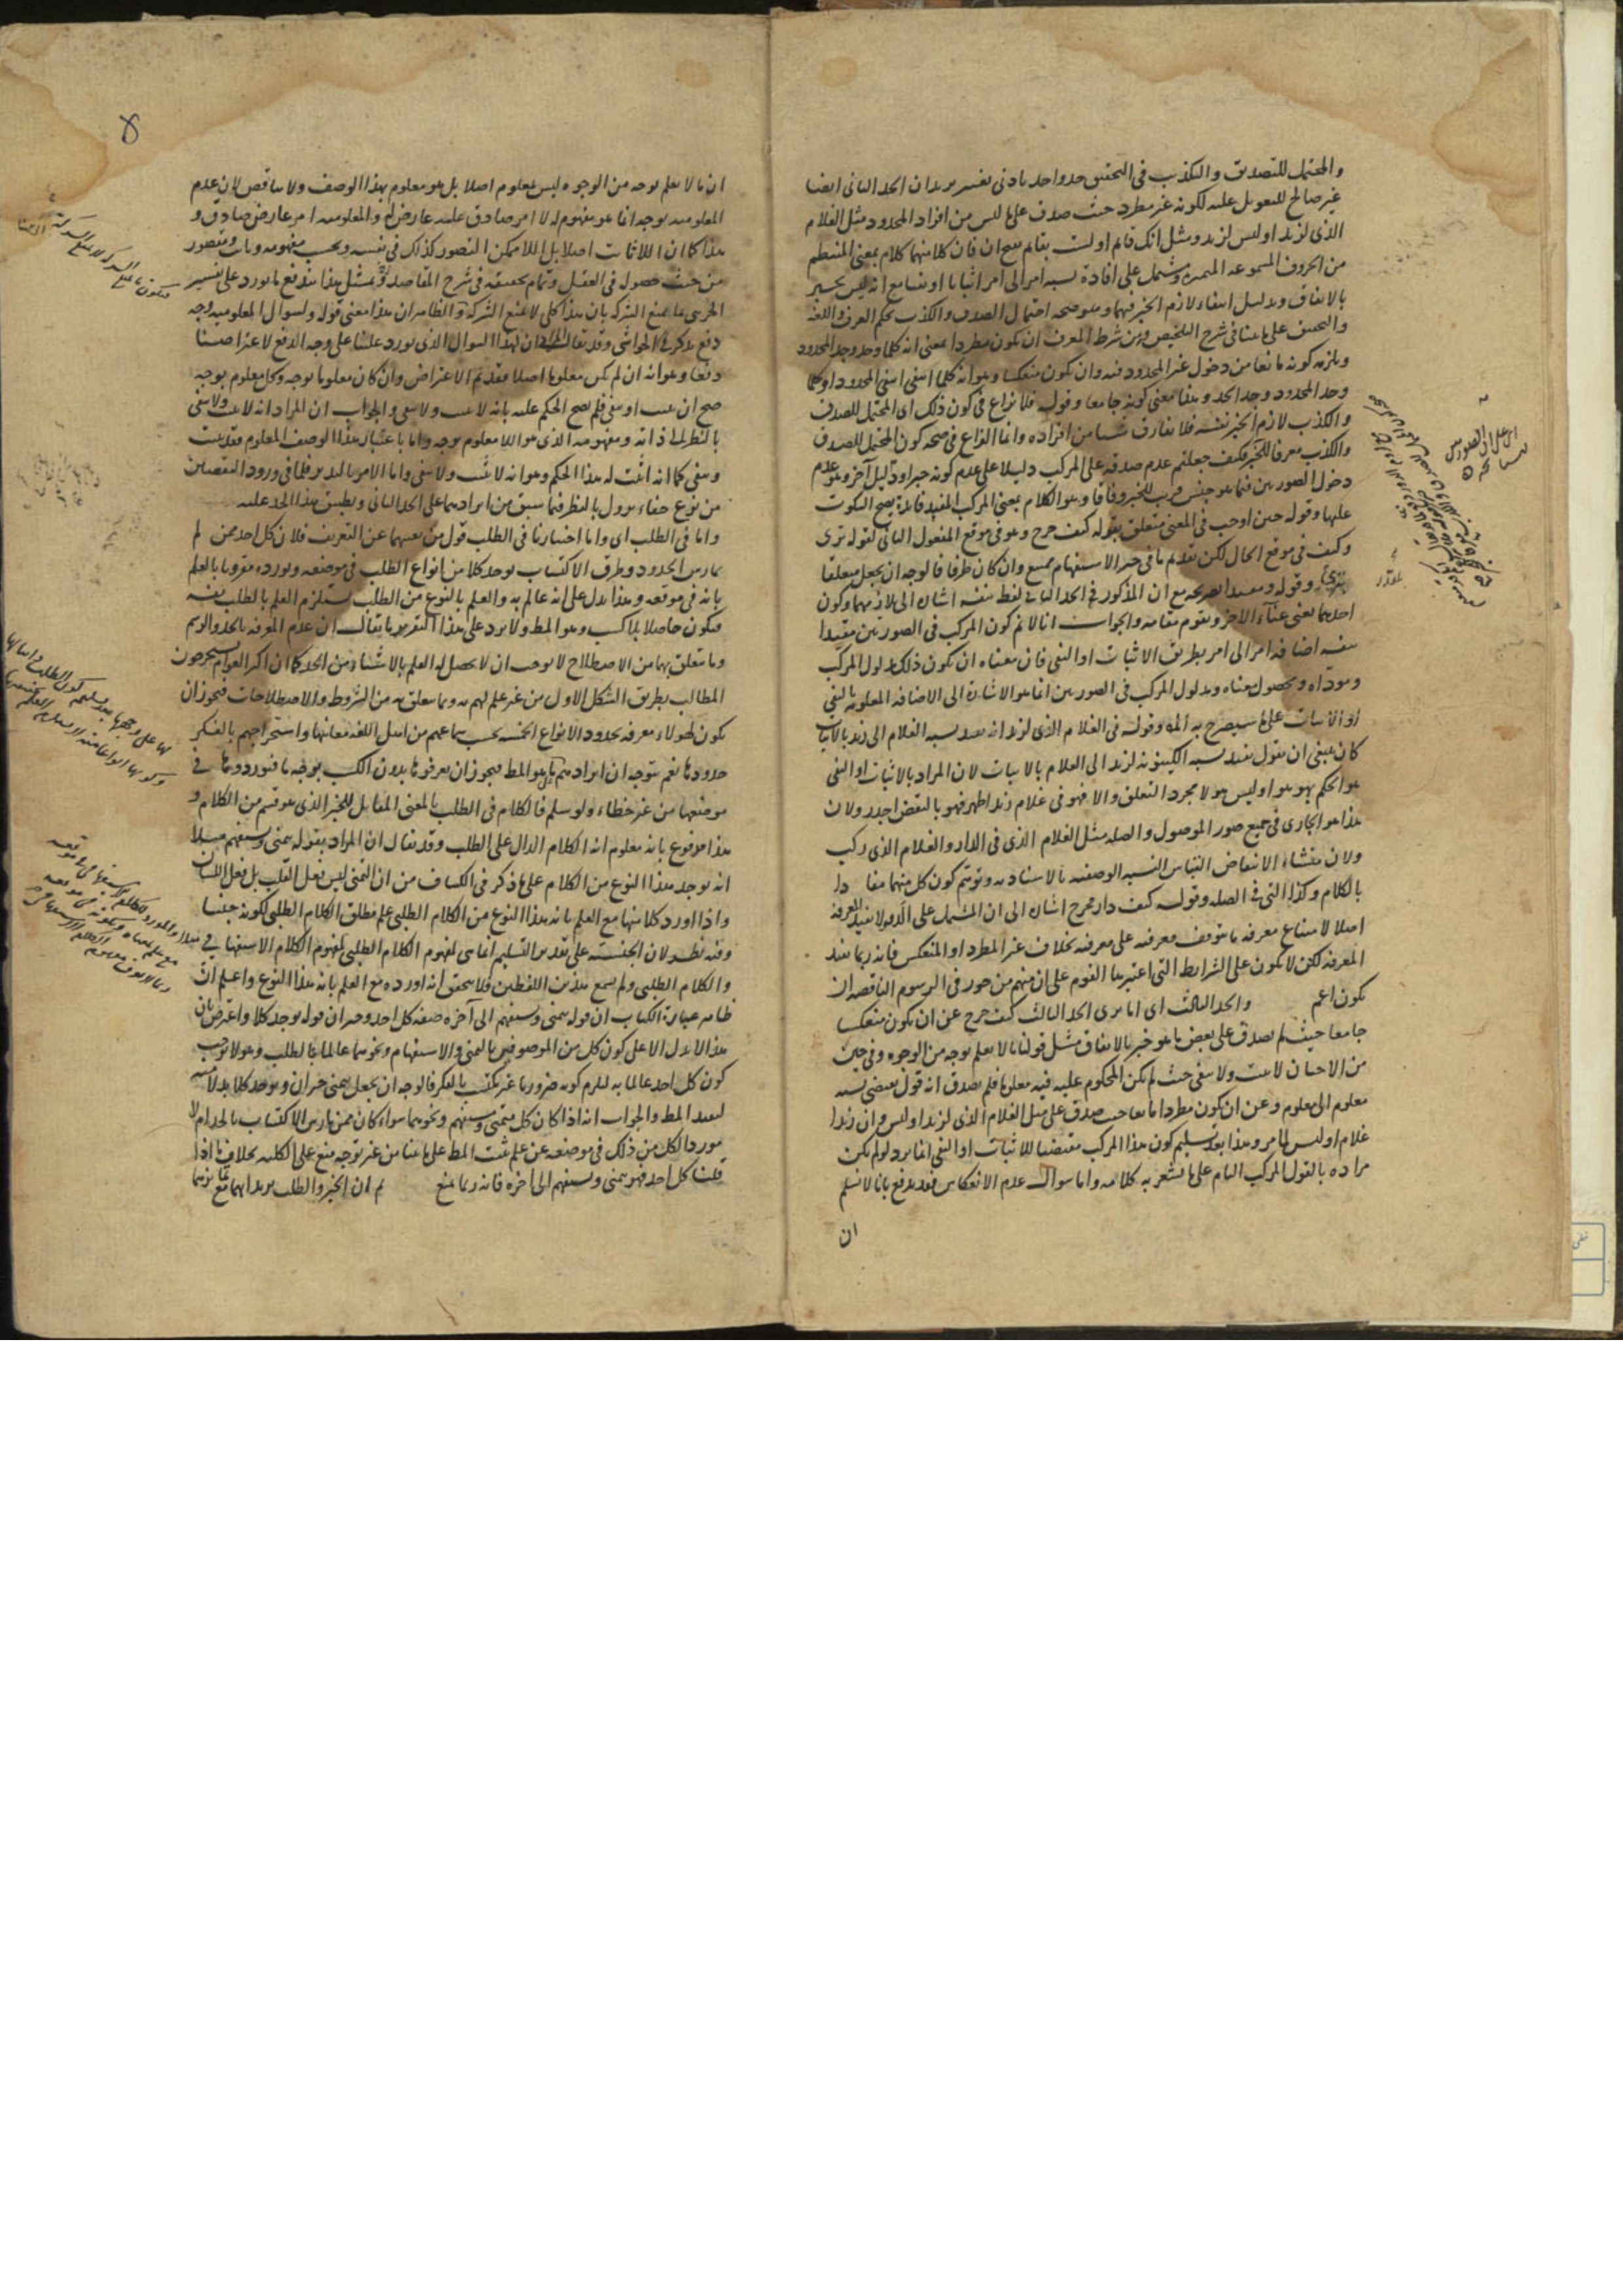 والمحتمل للتصديق والتكذيب فى التحقيق حد واحد بادنى تغيير يريد ان الحد الثانى ايضا
غير صالح للتعويل عليه لكونه غير مطرد حيث صدق على ما ليس من افراد المحدود مثل الغلام
الذى لزيد او ليس لزيد ومثل انك قائم او لست بقائم بفتح ان فان كلا منهما كلام بمعنى المنتظم
من الحروف المسموعة المتميزة ومشتمل على افادة نسبة امر الى امر اثباتا او نفيا مع انه ليس بخبر
بالاتفاق وبدليل انتفاء لازم الخبر فيهما وهو صحة احتمال الصدق والكذب بحكم العرف واللغة
والتحقيق على ما بينا فى شرح التلخيص ومن شرط المعرف ان يكون مطردا بمعنى انه كلما وجد وجد المحدود
ويلزمه كونه مانعا من دخول غير المحدود فيه وان يكون منعكسا وهو انه كلما انتفى انتفى المحدود او كلما
وجد المحدود وجد الحد وهذا معنى كونه جامعا وقوله فلا نزاع فى كون ذلك اى المحتمل للصدق
والكذب لازم الخبر نفسه فلا يفارق شيئا من افراده وانما النزاع فى صحة كون المحتمل للصدق
والكذب معرفا للخبر فكيف جعلتم عدم صدقه على المركب دليلا على عدم كونه خبرا ودليل آخر وهو عدم
دخول الصورتين فيما هو جنس قريب للخبر وفاقا وهو الكلام بمعنى المركب المفيد فائدة يصح السكوت
عليها وقوله حين اوجب فى المعنى متعلق بقوله كيف خرج وهو فى موقع المفعول الثانى لقوله ترى
وكيف فى موقع الحال لكن تقديم ما فى حيز الاستفهام ممتنع وان كان ظرفا فالوجه ان يجعل معلقا
وقوله ومفيدا لصريحه مع ان المذكور فى الحد الثانى لفظ نفسه اشارة الى تلازمهما وكون
احدهما يغنى غناء الآخر ويقوم مقامه والجواب انا لا نم كون المركب فى الصورتين مفيدا
بنفسه اضافة امر الى امر بطريق الاثبات او النفى فان معناه ان يكون ذلك مدلول المركب
ومؤداه ومحصول معناه ومدلول المركب فى الصورتين انما هو الاشارة الى الاضافة المعلومة بالنفى
او الاثبات على ما سيصرح به المص وقوله فى الغلام الذى لزيد انه يفيد نسبة الغلام الى زيد بالاثبات
كان ينبغى ان يقول يفيد نسبة الكينونة لزيد الى الغلام بالاثبات لان المراد بالاثبات او النفى
هو الحكم بهو هو او ليس هو لا مجرد التعلق والا فهو فى غلام زيد اظهر فهو بالنقض اجدر ولان
هذا هو الجارى فى جميع صور الموصول والصلة مثل الغلام الذى فى الدار والغلام الذى ركب
ولان منشاء الانتقاض التباس النسبة الوصفية بالاسنادية وتوهم كون كل منهما مفادا
بالكلام وكذا التى فى الصلة وقوله كيف دار مخرج اشارة الى ان المشتمل على الدور لا يفيد المعرفة
اصلا لامتناع معرفة ما يتوقف معرفته على معرفته بخلاف غير المطرد او المنعكس فانه ربما يفيد
المعرفة لكن لا يكون على الشرايط التى اعتبرها القوم على ان منهم من جوز فى الرسوم الناقصة ان
يكون اعم والحد الثالث اى اما ترى الحد الثالث كيف خرج عن ان يكون منعكسا
جامعا حيث لم يصدق على بعض ما هو خبر بالاتفاق مثل قولنا ما لا يعلم بوجه من الوجوه وفى حين
من الاحيان لا يثبت ولا ينفى حيث لم يكن المحكوم عليه فيه معلوما فلم يصدق انه قول يقتضى نسبة
معلوم الى معلوم وعن ان يكون مطردا مانعا حيث صدق على مثل الغلام الذى لزيد او ليس وان زيدا
غلام او ليس لما مر وهذا بعد تسليم كون هذا المركب مقتضيا للاثبات او النفى انما يرد لو لم يكن
مراده بالقول المركب التام على ما يشعر به كلامه واما سوال عدم الانعكاس فقد يدفع بانا لا نسلم
ان
ان ما لا يعلم بوجه من الوجوه ليس بمعلوم اصلا بل هو معلوم بهذا الوصف ولا تناقض لان عدم
المعلومية بوجه انما هو مفهوم له لا امر صادق عليه عارض له والمعلومية امر عارض صادق و
هذا كما ان اللاثابت اصلا بل اللاممكن التصور كذلك فى نفسه وبحسب مفهومه وثابت ومتصور
من حيث حصوله فى العقل وتمام تحقيقه فى شرح المقاصد وبمثل هذا يندفع ما يورد على تفسير
الجزئى بما يمنع الشركة بان هذا كلى لا يمنع الشركة والظاهر ان هذا معنى قوله ولسوال المعلومية وجه
دفع يذكر فى الحواشى وقد يقال ان لهذا السوال الذى نورد علينا على وجه الدفع لاعتراضنا
دفعا وهو انه ان لم يكن معلوما اصلا فقد تم الاعتراض وان كان معلوما بوجه وكل معلوم بوجه
صح ان يثبت او ينفى فلم يصح الحكم عليه بانه لا يثبت ولا ينفى والجواب ان المراد انه لا يثبت ولا ينفى
بالنظر الى ذاته ومفهومه الذى هو اللا معلوم بوجه واما باعتبار هذا الوصف المعلوم فقد يثبت
وينفى كما انه اثبت له هذا الحكم وهو انه لا يثبت ولا ينفى واما الامر بالتدبر فلما فى ورود النقضين
من نوع خفاء يزول بالنظر فيما سبق من ايرادهما على الحد الثانى وتطبيق هذا الحد عليه
واما فى الطلب اى واما اختيارنا فى الطلب قول من يغنيهما عن التعريف فلان كل احد ممن لم
يمارس الحدود وطرق الاكتساب يوجد كلا من انواع الطلب فى موضعه ويورده مقرونا بالعلم
بانه فى موقعه وهذا يدل على انه عالم به والعلم بالنوع من الطلب يستلزم العلم بالطلب نفسه
فيكون حاصلا بلا كسب وهو المط ولا يرد على هذا التقرير ما يقال ان عدم المعرفة بالحد والرسم
وما يتعلق بهما من الاصطلاح لا يوجب ان لا يحصل له العلم بالاشياء من الحد كما ان اكثر العوام يستخرجون
المطالب بطريق الشكل الاول من غير علم لهم به وما يتعلق به من الشروط والاصطلاحات فيجوز ان
يكون لهؤلاء معرفة بحدود الانواع الخمسة بحسب سماعهم من اهل اللغة معانيها واستخراجهم بالفكر
حدودها نعم يتوجه ان ايرادهم هو المط فيجوز ان يعرفوها بدون الكسب بوجه ما فيوردونها فى
موضعها من غير خطاء ولو سلم فالكلام فى الطلب بالمعنى المقابل للخبر الذى هو قسم من الكلام و
هذا مدفوع بانه معلوم انه الكلام الدال على الطلب وقد يقال ان المراد بقوله يتمنى ويستفهم مثلا
انه يوجد هذا النوع من الكلام على ما ذكر فى الكشاف من ان التمنى ليس فعل القلب بل فعل اللسان
واذا اورد كلا منها مع العلم بانه هذا النوع من الكلام الطلبى علم مطلق الكلام الطلبى لكونه جنسا
وفيه نظر لان الجنسية على تقدير التسليم انما هى لمفهوم الكلام الطلبى لمفهوم الكلام الاستفهامى
والكلام الطلبى ولم يسمع هذين اللفظين فلا يتحقق انه اورده مع العلم بانه هذا النوع واعلم ان
ظاهر عبارة الكتاب ان قوله يتمنى ويستفهم الى آخره صفة كل احد وخبر ان قوله يوجد كلا واعترض بان
هذا لا يدل الا على كون كل من الموصوفين بالتمنى والاستفهام ونحوهما عالما بالطلب وهو لا يوجب
كون كل احد عالما به ليلزم كونه ضروريا غير مكتسب بالفكر فالوجه ان يجعل يتمنى خبر ان ويوجد كلا بدلا منه
ليفيد المط والجواب انه اذا كان كل متمنى ومستفهم ونحوهما سواء كان ممن مارس الاكتساب بالحد ام لا
موردا لكل من ذلك فى موضعه عن علم ثبت المط على ما بينا من غير توجه منع على الكلية بخلاف ما اذا
قلنا كل احد فهو يتمنى ويستفهم الى آخره فانه ربما يمنع ثم ان الخبر والطلب يريد انهما مع تمايزهما